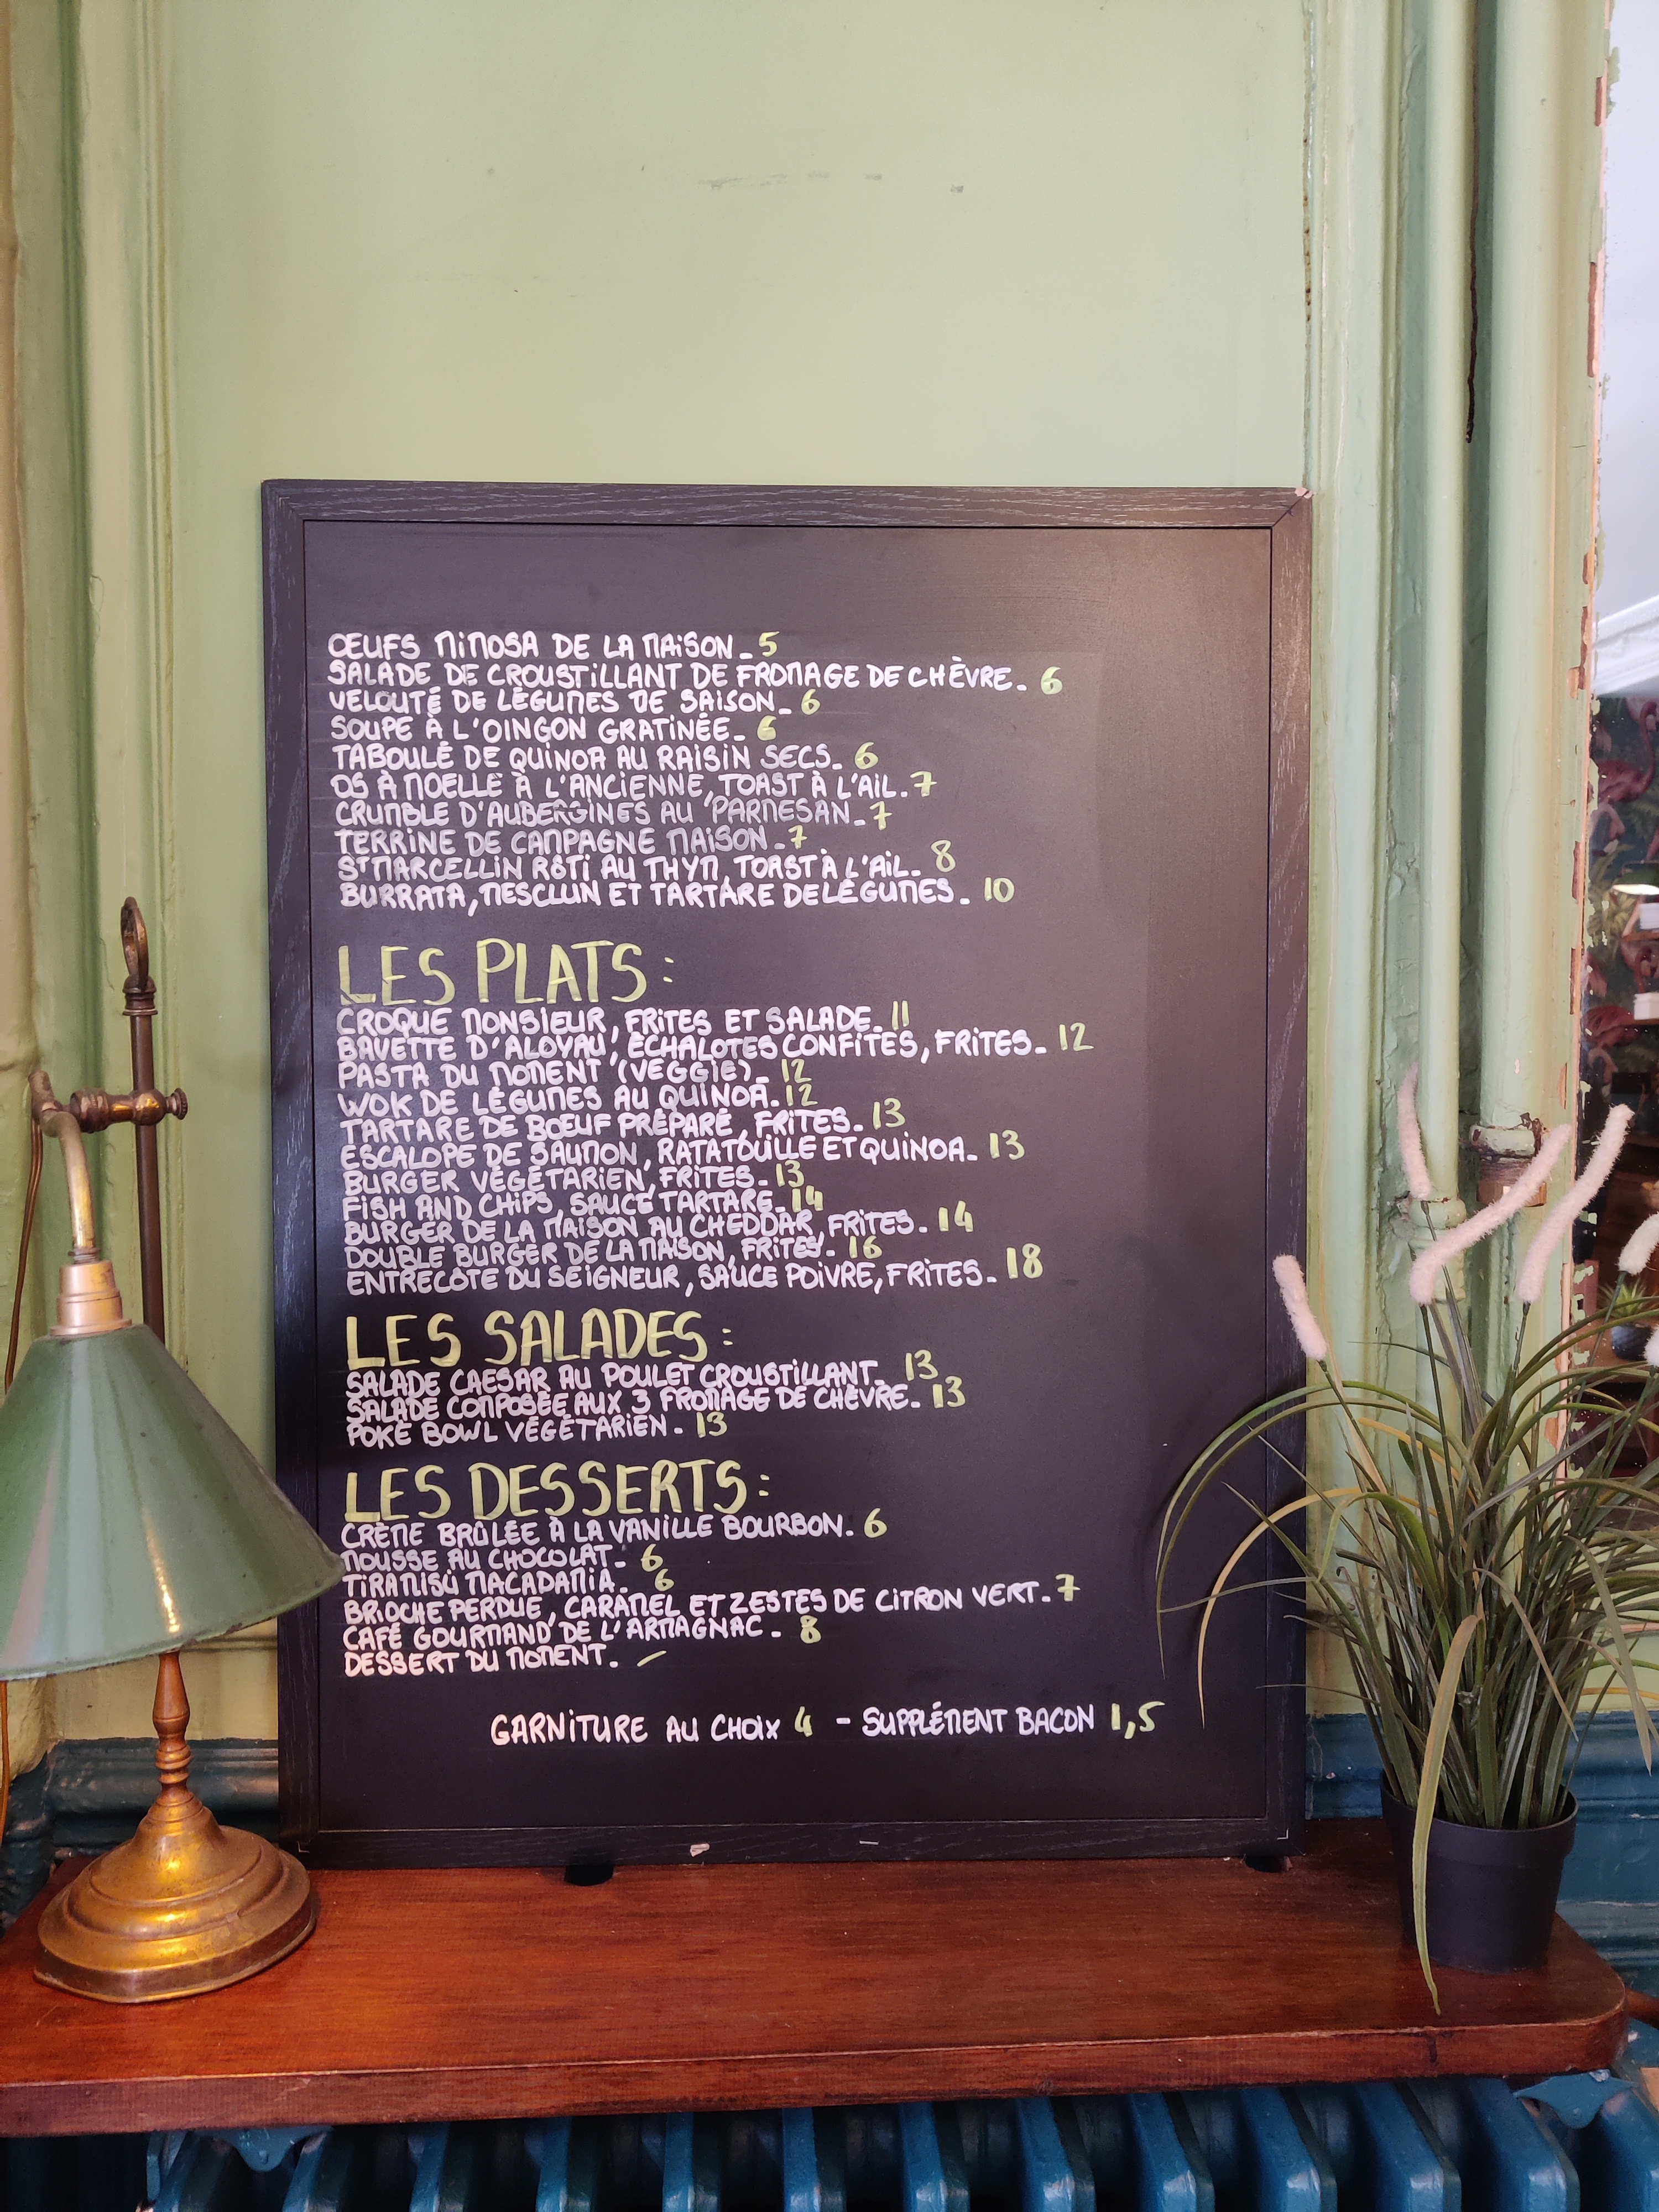 ŒUFS MIMOSA DE LA MAISON_5
SALADE DE CROUSTILLANT DE FROMAGE DE CHÈVRE_ 6
VELOUTÉ DE LÉGUMES DE SAISON_ 6
SOUPE À L'OINGON GRATINÉE_ 6
TABOULÉ DE QUINOA AU RAISIN SECS_ 6
OS À MOELLE À L'ANCIENNE, TOAST À L'AIL. 7
CRUMBLE D'AUBERGINES AU PARMESAN_7
TERRINE DE CAMPAGNE MAISON_7
ST MARCELLIN RÔTI AU THYM, TOAST À L'AIL_ 8
BURRATA, MESCLUN ET TARTARE DE LÉGUMES_ 10
LES PLATS :
CROQUE MONSIEUR, FRITES ET SALADE_11
BAVETTE D'ALOYAU, ÉCHALOTES CONFITES, FRITES_ 12
PASTA DU MOMENT (VEGGIE)_ 12
WOK DE LÉGUMES AU QUINOA. 12
TARTARE DE BOEUF PRÉPARÉ, FRITES. 13
ESCALOPE DE SAUMON, RATATOUILLE ET QUINOA_ 13
BURGER VÉGÉTARIEN, FRITES. 13
FISH AND CHIPS, SAUCE TARTARE_14
BURGER DE LA MAISON AU CHEDDAR, FRITES. 14
DOUBLE BURGER DE LA MAISON, FRITES. 16
ENTRECÔTE DU SEIGNEUR, SAUCE POIVRE, FRITES_ 18
LES SALADES :
SALADE CAESAR AU POULET CROUSTILLANT_ 13
SALADE COMPOSÉE AUX 3 FROMAGE DE CHÈVRE_ 13
POKÉ BOWL VÉGÉTARIEN. 13
LES DESSERTS :
CRÈME BRÛLÉE À LA VANILLE BOURBON. 6
MOUSSE AU CHOCOLAT_ 6
TIRAMISÙ MACADAMIA_ 6
BRIOCHE PERDUE, CARAMEL ET ZESTES DE CITRON VERT. 7
CAFÉ GOURMAND DE L'ARMAGNAC_ 8
DESSERT DU MOMENT. /
GARNITURE AU CHOIX 4 - SUPPLÉMENT BACON 1,5